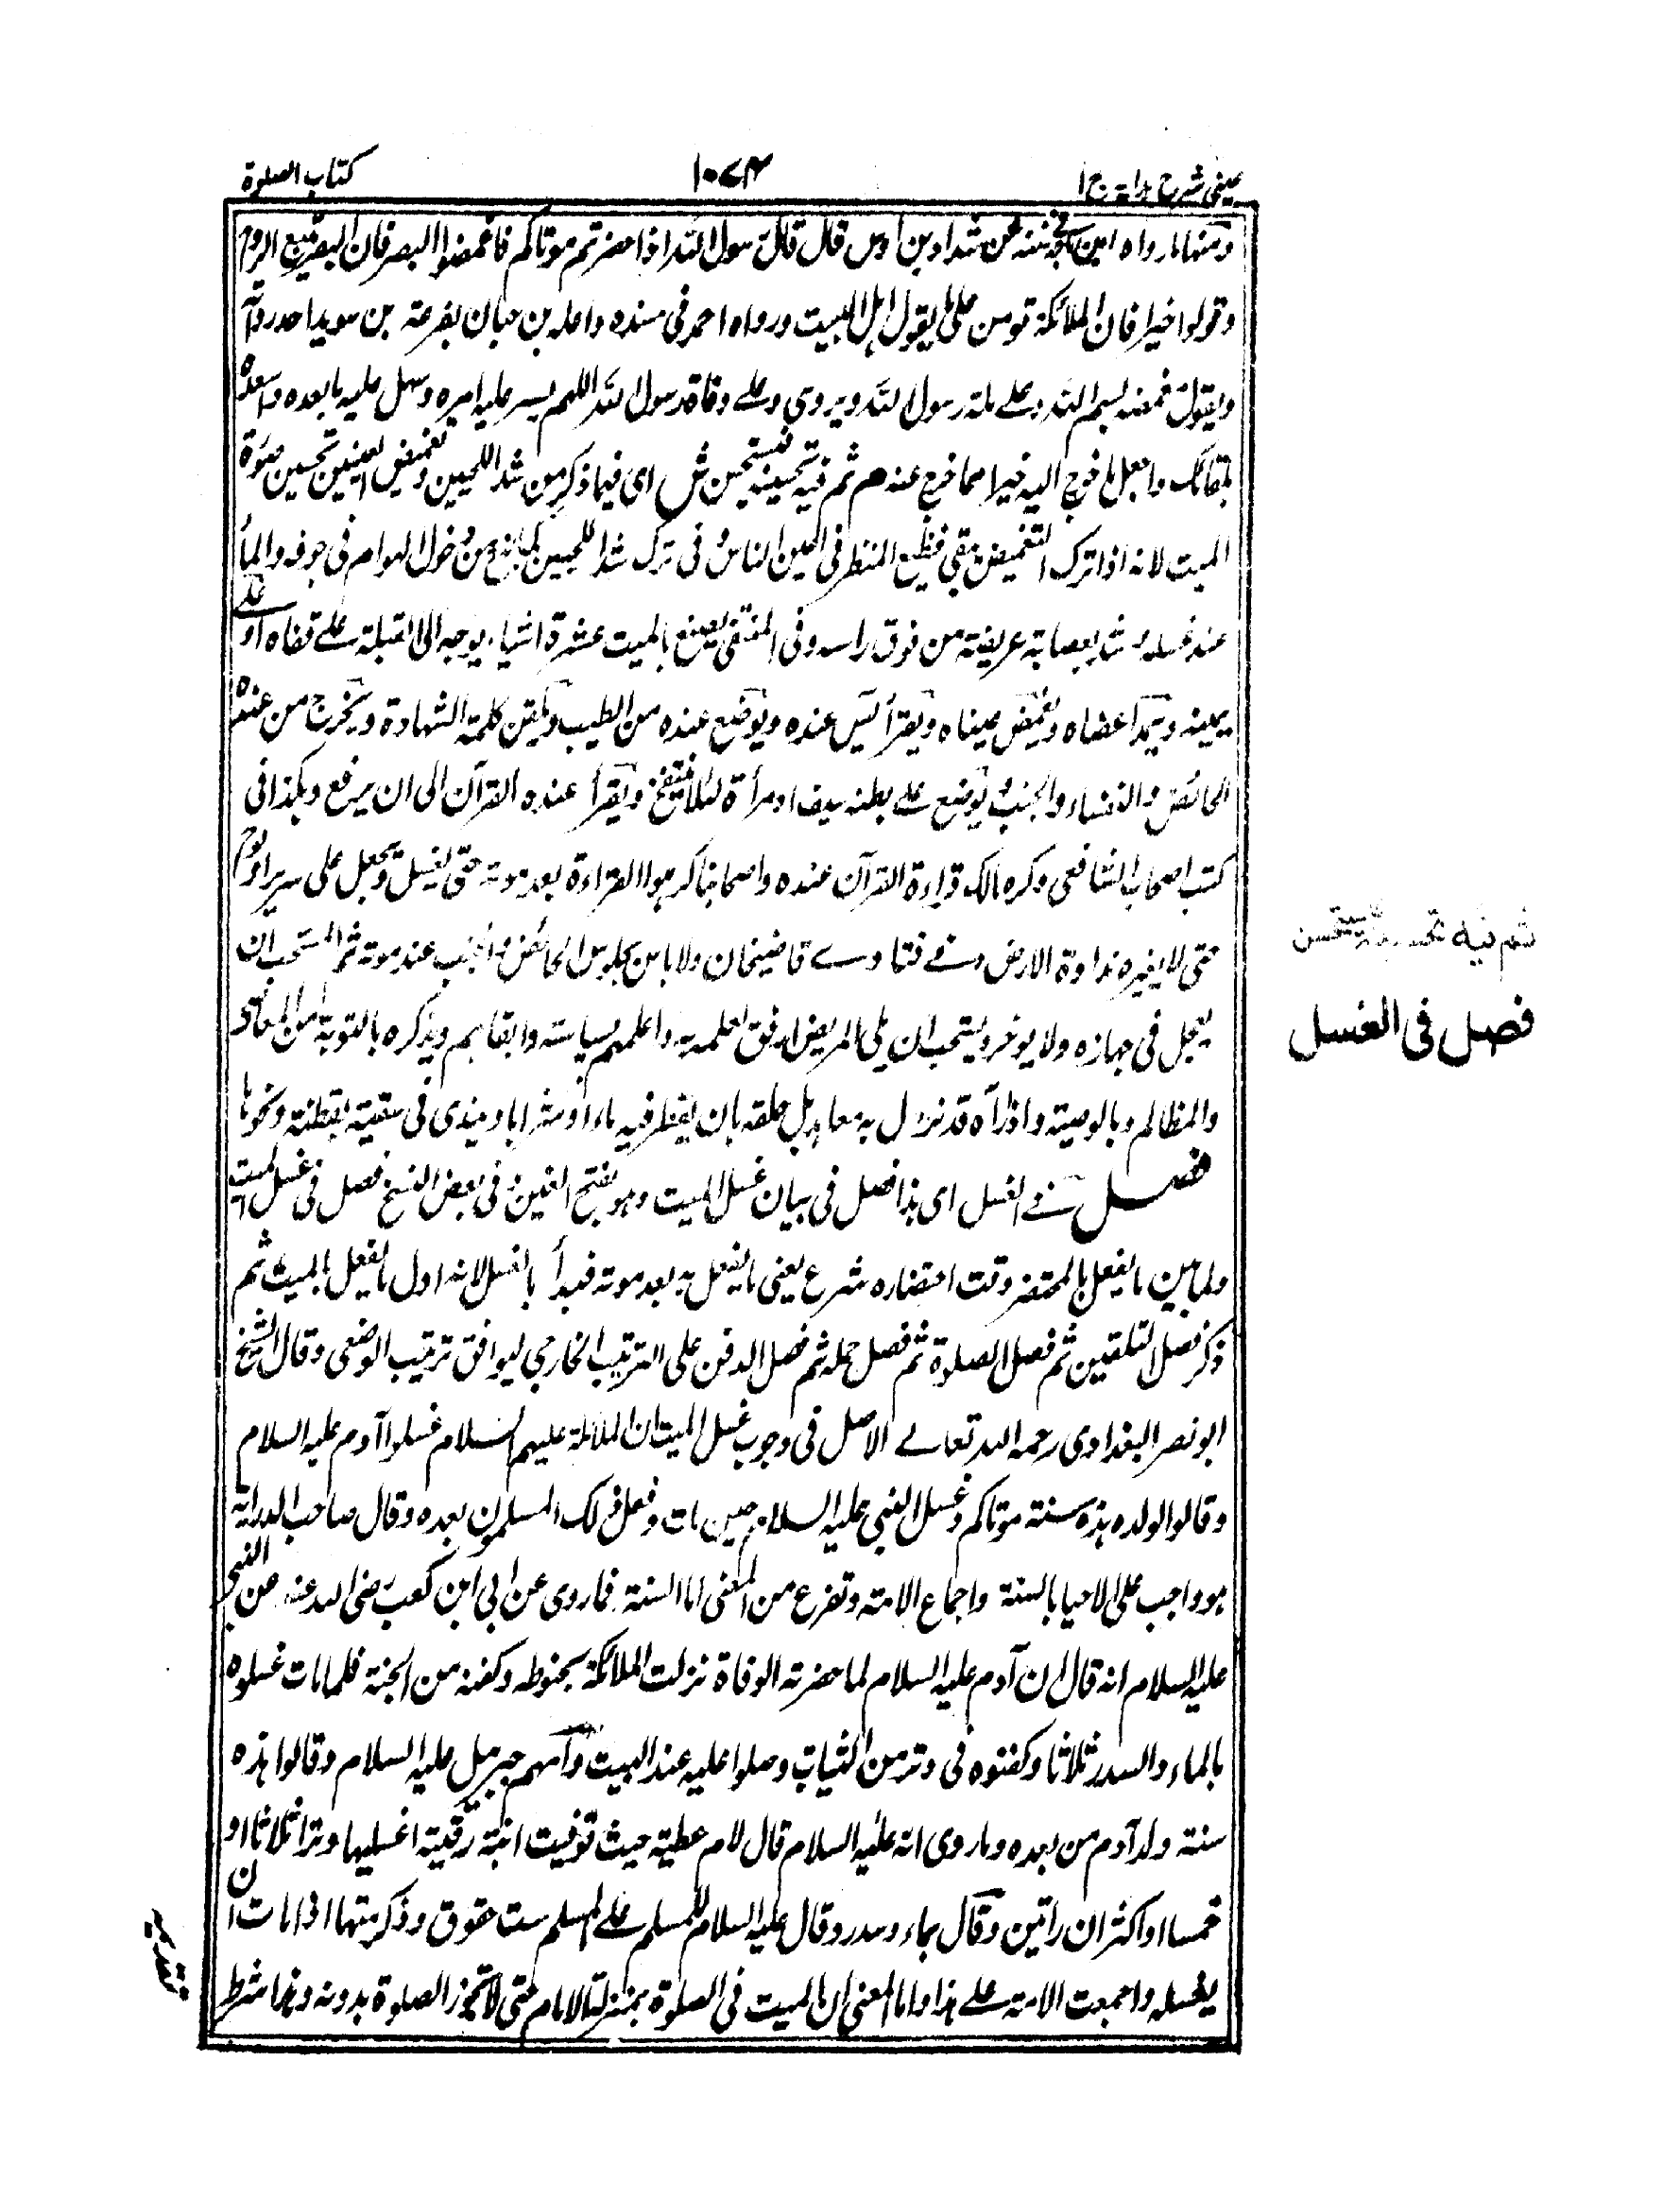 عینی شرح ہدایہ ج ا
۱۰۷۴
کتاب الصلوۃ
ومنها ما رواه ابن ماجه فى سننه عن شداد بن اوس قال قال رسول الله اذا حضرتم موتاكم فاغمضوا البصر فان البصر يتبع الروح
وقولوا خيرا فان الملائكة تومن على ما يقول اہل البيت ورواه احمد فى مسنده واعله بن حبان بقزعة بن سويد احد رواته
ويقول مغمضه بسم الله وعلے ملة رسول الله ويروى وعلے وفاة رسول الله اللهم يسر عليه امره وسهل عليه ما بعده واسعده
بلقائك واجعل ما خرج اليه خيرا مما خرج عنه م ثم فيه تحسينه فيستحسن ش اى فيما ذكر من شد اللحيين وتغميض العينين تحسين صورة
الميت لانه اذا ترك التغميض يبقى فظيع المنظر فى اعين الناس وفى ترك شد اللحيين لا يمنع من دخول الهوام فى جوفه والماء
عند غسله ويشد بعصابة عريضة من فوق راسه وفى المنتقى يصنع بالميت عشرة اشياء يوجه الى القبلة علے قفاه او علے
يمينه ويمد اعضاه ويغمض عيناه ويقرأ يس عنده ويوضع عنده من الطيب ويلقن كلمة الشهادة ويخرج من عنده
الحائض والنفساء والجنب ويوضع علے بطنه سيف او مرأة لئلا ينتفخ ويقرأ عنده القرآن الى ان يرفع وہكذا فى
كتب اصحاب الشافعى وكره مالك قراءة القرآن عنده واصحابنا كرہوا القراءة بعد موته حتى يغسل ويجعل على سرير او لوح
حتى لا يغيره نداوة الارض وفے فتاوے قاضيخان ولا باس بجلوس الحائض والجنب عند موته ثم المستحب ان
يعجل فى جہازه ولا يوخر ويستحب ان يلى المريض ارفق اہله به واعلمهم بسياسته واتقاہم ويذكره بالتوبة من المعاصى
والمظالم وبالوصية واذا رآه قد نزل به تعاہد بل حلقه بان يقطر فيه ماء او شرابا ويندى فى شفتيه بقطنة ونحوہا
فصل فے الغسل اى ہذا فصل فى بيان غسل الميت وہو بفتح الغين وفى بعض النسخ فصل فى غسل الميت
ولما بين ما يفعل بالمحتضر وقت احتضاره شرع يعنى ما يفعل به بعد موته فبدأ بالغسل لانه اول ما يفعل بالميت ثم
ذكر فصل التلقين ثم فصل الصلوة ثم فصل حمله ثم فصل الدفن على الترتيب الخارجى ليوافق ترتيب الوضعى وقال الشيخ
ابو نصر البغدادى رحمه الله تعالے الاصل فى وجوب غسل الميت ان الملائكة عليهم السلام غسلوا آدم عليه السلام
وقالوا لولده ہذه سنة موتاكم وغسل النبى عليه السلام حين مات وفعل ذلك المسلمون بعده وقال صاحب الدراية
ہو واجب على الاحيا بالسنة واجماع الامة وتفرع من المعنى اما السنة فما روى عن ابى ابن كعب رضى الله عنه عن النبى
عليه السلام انه قال ان آدم عليه السلام لما حضرته الوفاة نزلت الملائكة بحنوطه وكفنه من الجنة فلما مات غسلوه
بالماء والسدر ثلاثا وكفنوه فى وتر من الثياب وصلوا عليه عند البيت وامهم جبريل عليه السلام وقالوا ہذه
سنة ولد آدم من بعده وما روى انه عليه السلام قال لام عطية حيث توفيت ابنته رقية اغسليها وترا ثلاثا او
خمسا او اكثر ان راتين وقال بماء وسدر وقال عليه السلام للمسلم علے المسلم ست حقوق وذكر منها اذا مات ان
يغسله واجمعت الامة علے ہذا واما المعنى ان الميت فى الصلوة بمنزلة الامام حتى لا تجوز الصلوة بدونه وہذا شرط
ثم فيه تحسينه فيستحسن
فصل فى الغسل